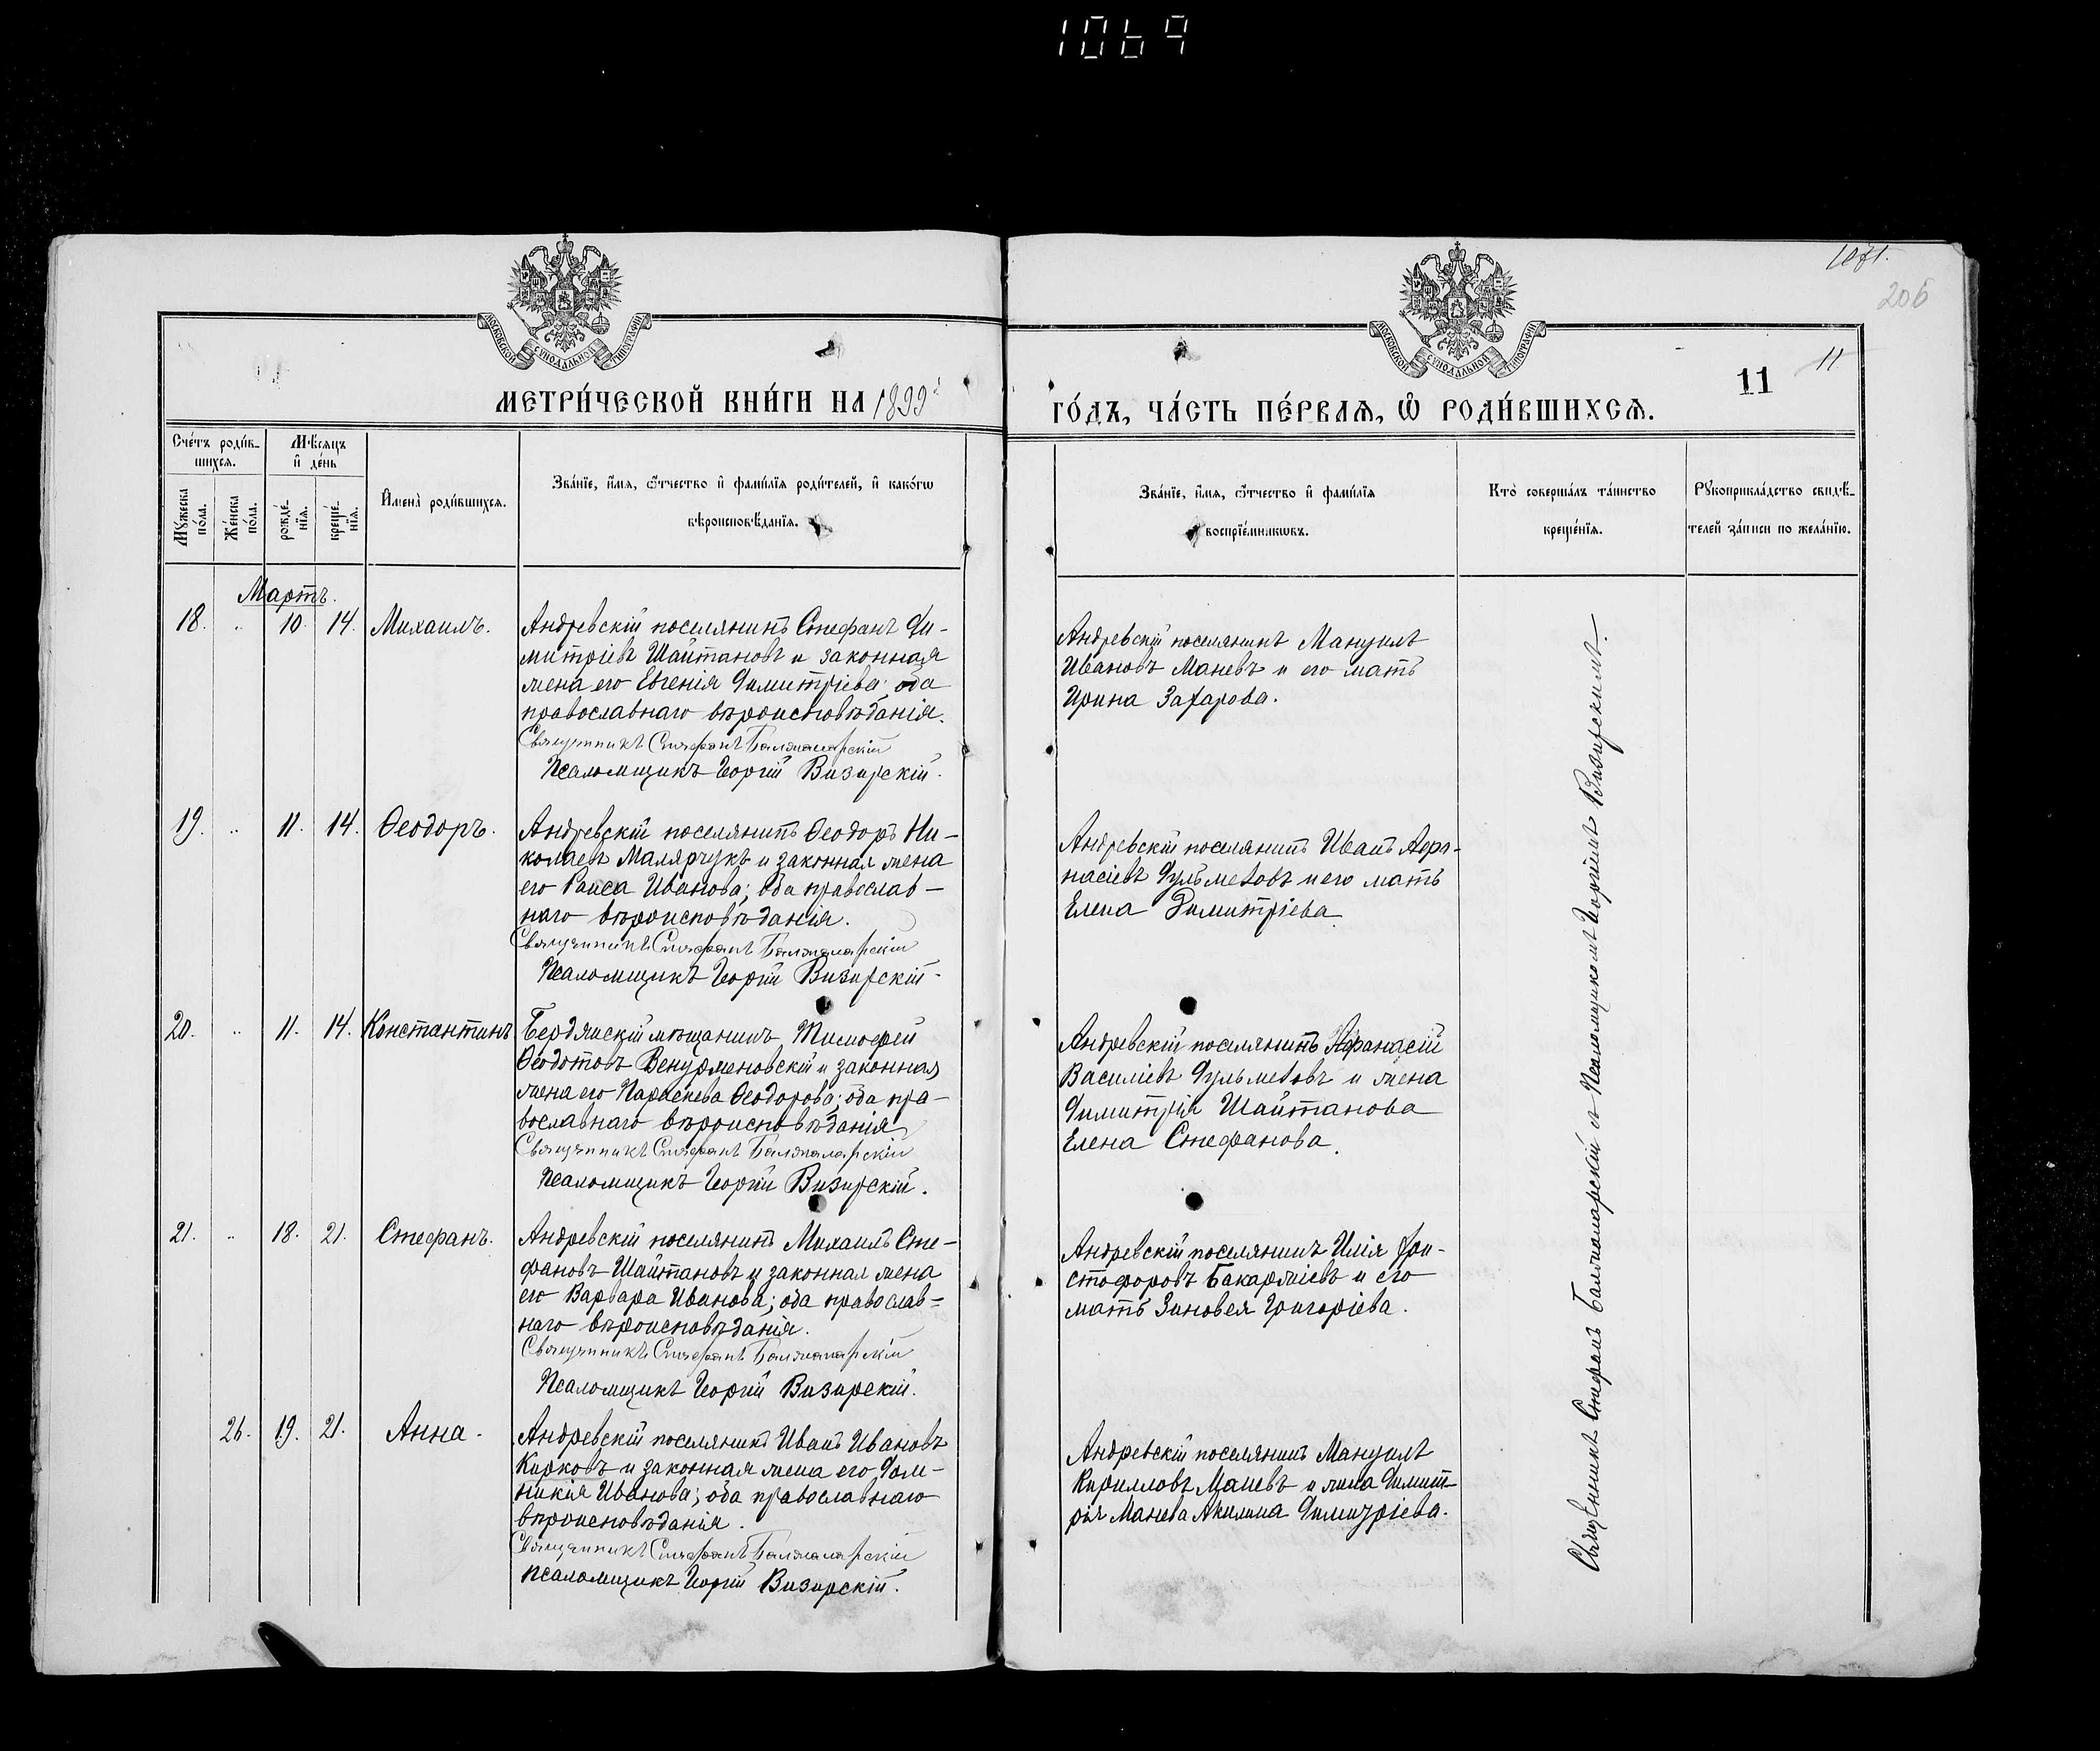 1069
1071.
206
11
11
МОСКОВСКОЙ СѴНОДАЛЬНОЙ ТИПОГРАФІИ
МОСКОВСКОЙ СѴНОДАЛЬНОЙ ТИПОГРАФІИ
МЕТРИ́ЧЕСКОЙ КНИ́ГИ НА 1899й
ГО́ДЪ, ЧА́СТЬ ПЕ́РВАѦ, Ѡ҆ РОДИ́ВШИХСѦ.
Сче́тъ роди́в-
шихсѧ.
Мѣ́сѧцъ
и҆ де́нь
Мꙋ́жеска
по́ла.
Же́нска
по́ла.
рожде́-
нїѧ.
креще́-
нїѧ.
И҆мена̀ роди́вшихсѧ.
Зва́нїе, и҆́мѧ, ѻ҆́тчество и҆ фами́лїѧ роди́телей, и҆ како́гѡ
вѣроисповѣ́данїѧ.
Зва́нїе, и҆́мѧ, ѻ҆́тчество и҆ фами́лїѧ
воспрїе́мникѡвъ.
Кто̀ соверша́лъ та́инство
креще́нїѧ.
Рꙋкоприкла́дство свидѣ́-
телей за́писи по жела́нїю.
Мартъ.
18. " 10. 14. Михаилъ.
Андревскій поселянинъ Стефанъ Ди-
митріевъ Шайтановъ и законная
жена его Евгенія Димитріева; оба
православнаго вѣроисповѣданія.
Священникъ Стефанъ Балжаларскій
Псаломщикъ Георгій Визирскій.
Андревскій поселянинъ Мануилъ
Ивановъ Маневъ и его мать
Ирина Захарова.
19. " 11. 14. Ѳеодоръ.
Андревскій поселянинъ Ѳеодоръ Ни-
колаевъ Малярчукъ и законная жена
его Раиса Иванова; оба православ-
наго вѣроисповѣданія.
Священникъ Стефанъ Балжаларскій
Псаломщикъ Георгій Визирскій.
Андревскій поселянинъ Иванъ Афа-
насіевъ Дульметовъ и его мать
Елена Димитріева
20. " 11. 14. Константинъ
Бердянскій мѣщанинъ Тимофей
Ѳеодотовъ и законная
жена его Параскева Ѳеодорова; оба пра-
вославнаго вѣроисповѣданія
Священникъ Стефанъ Балжаларскій
Псаломщикъ Георгій Визирскій.
Андревскій поселянинъ Афанасій
Василіевъ Дульметовъ и жена
Димитрія Шайтанова
Елена Стефанова.
21. " 18. 21. Стефанъ.
Андревскій поселянинъ Михаилъ Сте-
фановъ Шайтановъ и законная жена
его Варвара Иванова; оба православ=
наго вѣроисповѣданія.
Священникъ Стефанъ Балжаларскій
Псаломщикъ Георгій Визирскій.
Андревскій поселянинъ Илія Хри-
стофоровъ Бакаржіевъ и его
мать Зиновея Григоріева.
26. 19. 21. Анна.
Андревскій поселянинъ Иванъ Ивановъ
Кирковъ и законная жена его Дом-
никія Иванова; оба православнаго
вѣроисповѣданія.
Священникъ Стефанъ Балжаларскій
Псаломщикъ Георгій Визирскій.
Андревскій поселянинъ Мануилъ
Кирилловъ Маневъ и жена Димит-
рія Манева Акилина Димитріева.
Священникъ Стефанъ Балжаларскій съ Псаломщикомъ Георгіемъ Визирскимъ.